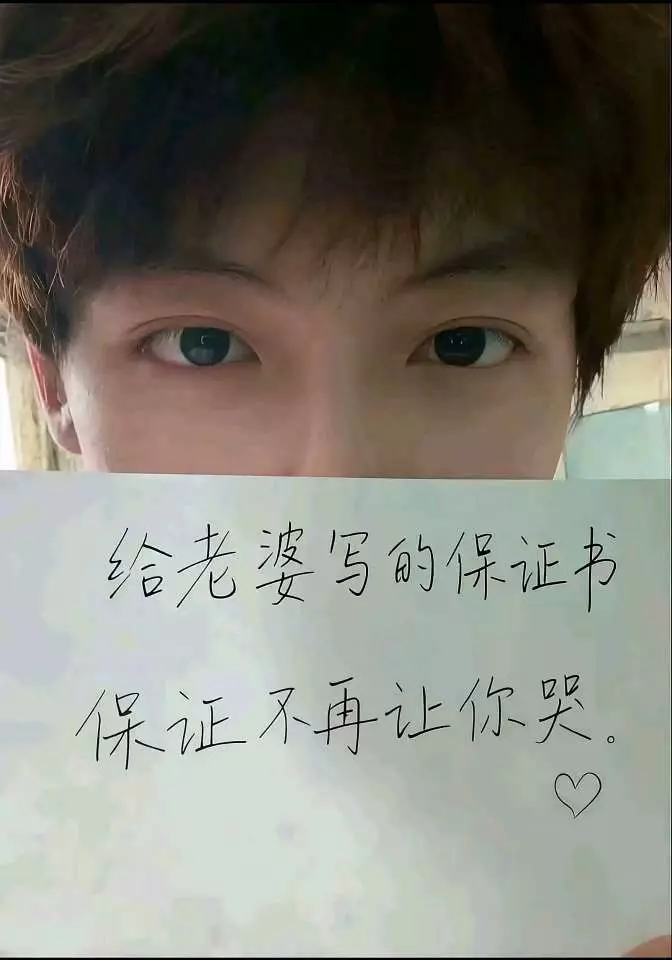 给老婆写的保证书
保证不再让你哭。